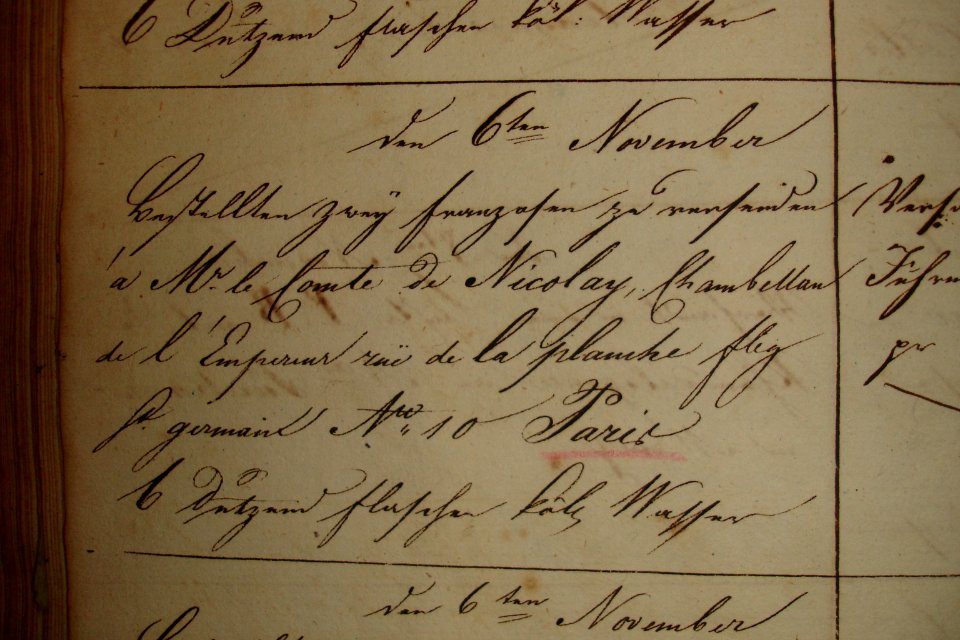 6 Dutzend flaschen köl: Wasser
den 6ten November
bestellten zwey franzosen zu versenden
à Mr. le Comte de Nicolay, Chambellan
de l'Empereur rüe de la planche fbg
St. germain No 10 Paris
6 Dutzend flaschen köln Wasser
den 6ten November
Vers
Führm
pr